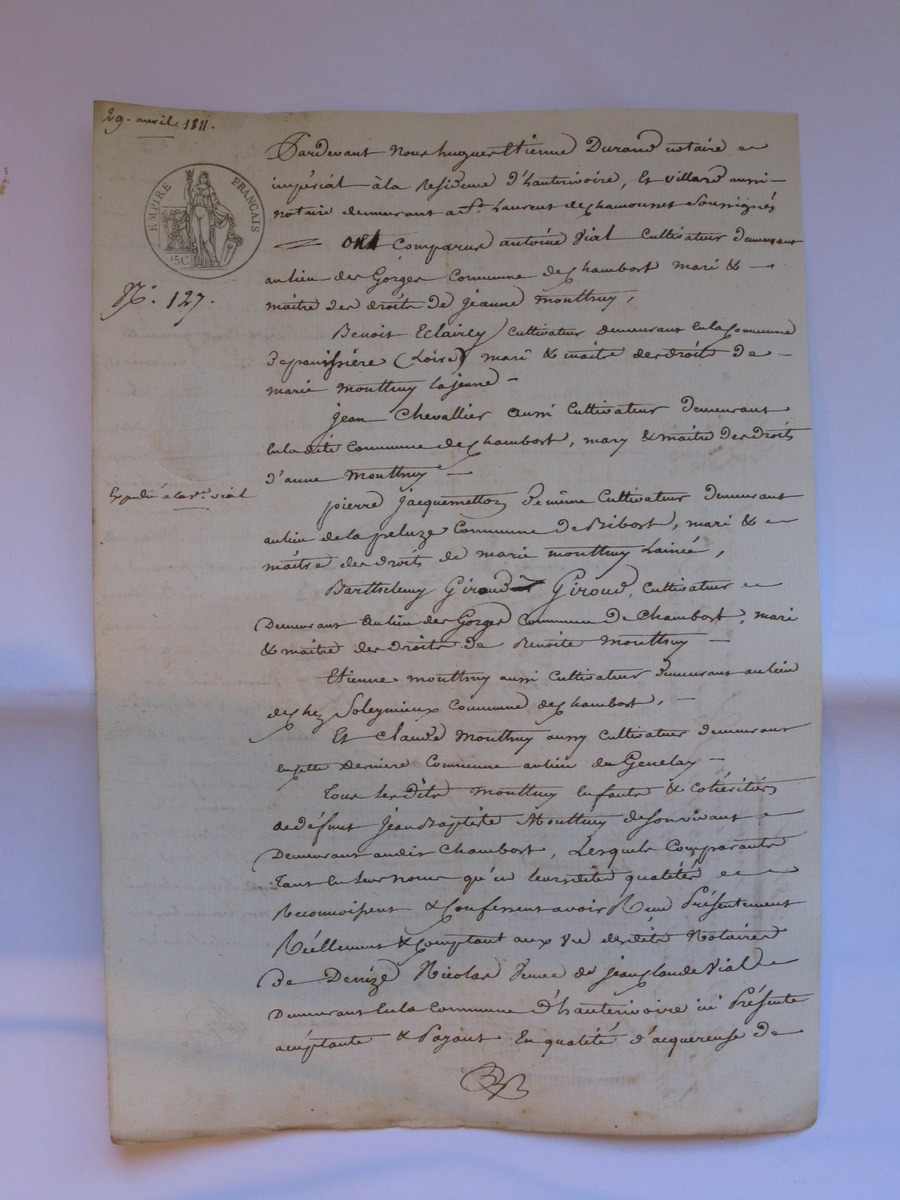 29. avril 1811.
EMPIRE FRANÇAIS
25C
N.° 127.
Expédié à la v.e vial
Pardevant Nous hugues Etienne Durand notaire
impérial à la Residence d'hauterivoire, Et Villard aussi
notaire demeurant a St. Laurent de chamousset soussignés
Ont Comparus antoine Vial Cultivateur demeurant
au lieu des Gorges Commune de chambost mari &
maitre des droits de jeanne Mouttuy,
Benoit Eclaircy Cultivateur demeurant en la Commune
de panissière (Loire) mari & maitre des droits de
marie Mouttuy la jeune
jean Chevallier aussi Cultivateur demeurant
en la dite Commune de chambost, mary & maitre des droits
d'anne Mouttuy
pierre jacquemetton de même Cultivateur demeurant
au lieu de la peluze Commune de Ribost, mari &
maitre des droits de marie mouttuy Lainée,
Barthelemy Giroud Cultivateur
Demeurant au lieu des Gorges Commune de Chambost, mari
& maitre des droits de Benoite Mouttuy
Etienne mouttuy aussi Cultivateur demeurant au lieu
de chez Soleymieux Commune de chambost,
Et Claude Mouttuy aussy Cultivateur demeurant
en cette Derniere Commune au lieu du Genetay
Tous les dits Mouttuy Enfants & cohéritiers
de défunt Jean Baptiste Mouttuy de son vivant
Demeurant audit Chambost, Lesquels Comparants
Tant en leur noms qu'en leurs dite qualités
Reconnoissent & Confessent avoir Recu Présentement
Réellement & Comptant aux vue desdits Notaires
De Denize Nicolas Veuve de jean Claude Vial
Demeurant En la Commune d'hauterivoire ici Présente
acceptante & Payant En qualité d'acquereuse de